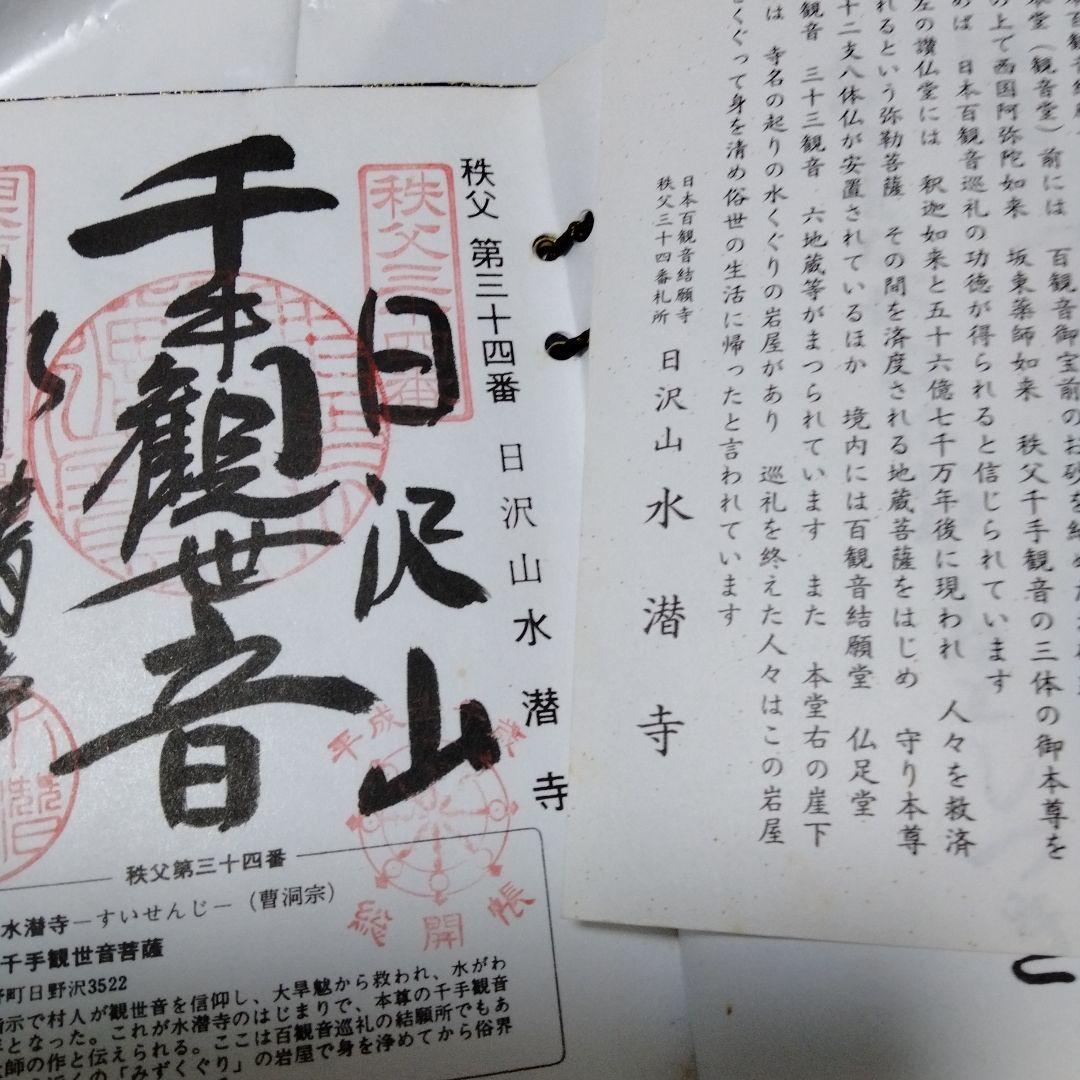 本堂（観音堂）前には 百観音御宝前のお砂を納めた
の上で西国阿弥陀如来 坂東薬師如来 秩父千手観音の三体の御本尊を
めば 日本百観音巡礼の功徳が得られると信じられています
左の讃仏堂には 釈迦如来と五十六億七千万年後に現われ 人々を救済
れるという弥勒菩薩 その間を済度される地蔵菩薩をはじめ 守り本尊
十二支八体仏が安置されているほか 境内には百観音結願堂 仏足堂
観音 三十三観音 六地蔵等がまつられています また 本堂右の崖下
は 寺名の起りの水くぐりの岩屋があり 巡礼を終えた人々はこの岩屋
くぐって身を清め俗世の生活に帰ったと言われています
日本百観音結願寺
秩父三十四番札所 日沢山 水潜寺
秩父 第三十四番 日沢山水潜寺
秩父三十四番
日沢山
千手観世音
水潜寺
平成
総開帳
秩父第三十四番
水潜寺―すいせんじ―（曹洞宗）
千手観世音菩薩
野町日野沢3522
指示で村人が観世音を信仰し、大旱魃から救われ、水がわ
年となった。これが水潜寺のはじまりで、本尊の千手観音
大師の作と伝えられる。ここは百観音巡礼の結願所でもあ
の「みずくぐり」の岩屋で身を浄めてから俗界